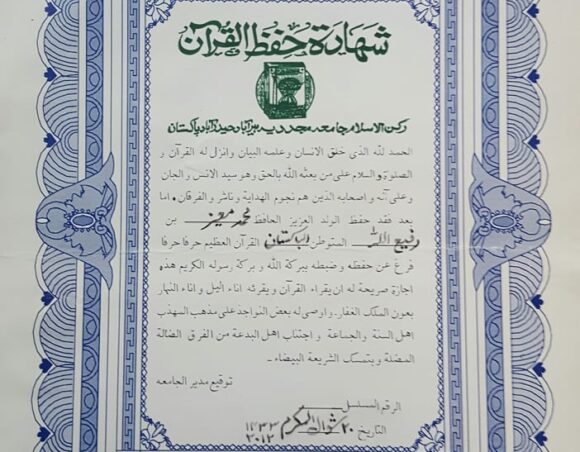 شهادة حفظ القرآن
ركن الاسلام جامعه مجدديه ہیرآباد حیدرآباد پاکستان
الحمد لله الذي خلق الانسان وعلمه البيان وانزل له القرآن و
الصلوة و السلام على من بعثه الله بالحق وهو سيد الانس و الجان
وعلى آله و اصحابه الذين هم نجوم الهداية وناشر و الفرقان، اما
بعد فقد حفظ الولد العزيز الحافظ محمد معيز بن
رفيع الله المتوطن الباكستان القرآن العظيم حرفا حرفا
فرغ عن حفظه و ضبطه ببركة الله و بركة رسوله الكريم هذه
اجازة صريحة له ان يقراء القرآن و يقرئه اناء اليل و اناء النهار
بعون الملك الغفار ـ و اوصى له بعض النواجد على مذهب المهذب
اهل السنة والجماعة و اجتناب اهل البدعة من الفرق الضالة
المضلة و بتمسك الشريعة البيضاء ـ
توقيع مدير الجامعه
الرقم المسلسل
التاريخ ٢٠ شوال المكرم ١٤٣٣
٢٠١٢